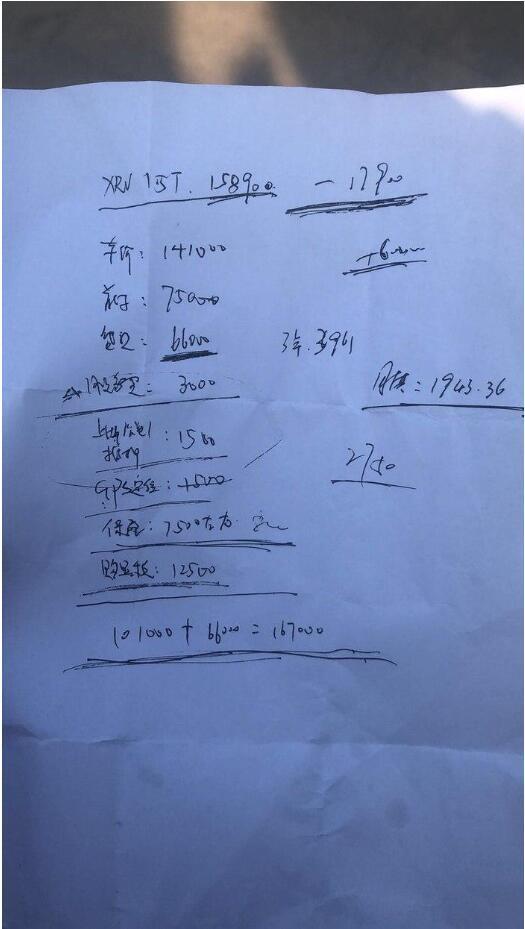 XRV 1.5T. 158900 - 17900
车价: 141000 +6000
首付: 75000
贷款: 66000 3年. 3961
3000 月供: 1943.36
上牌 : 1500
2750
GPS定位: +1500
保险: 7500左右
购置税: 12500
101000 + 66000 = 167000